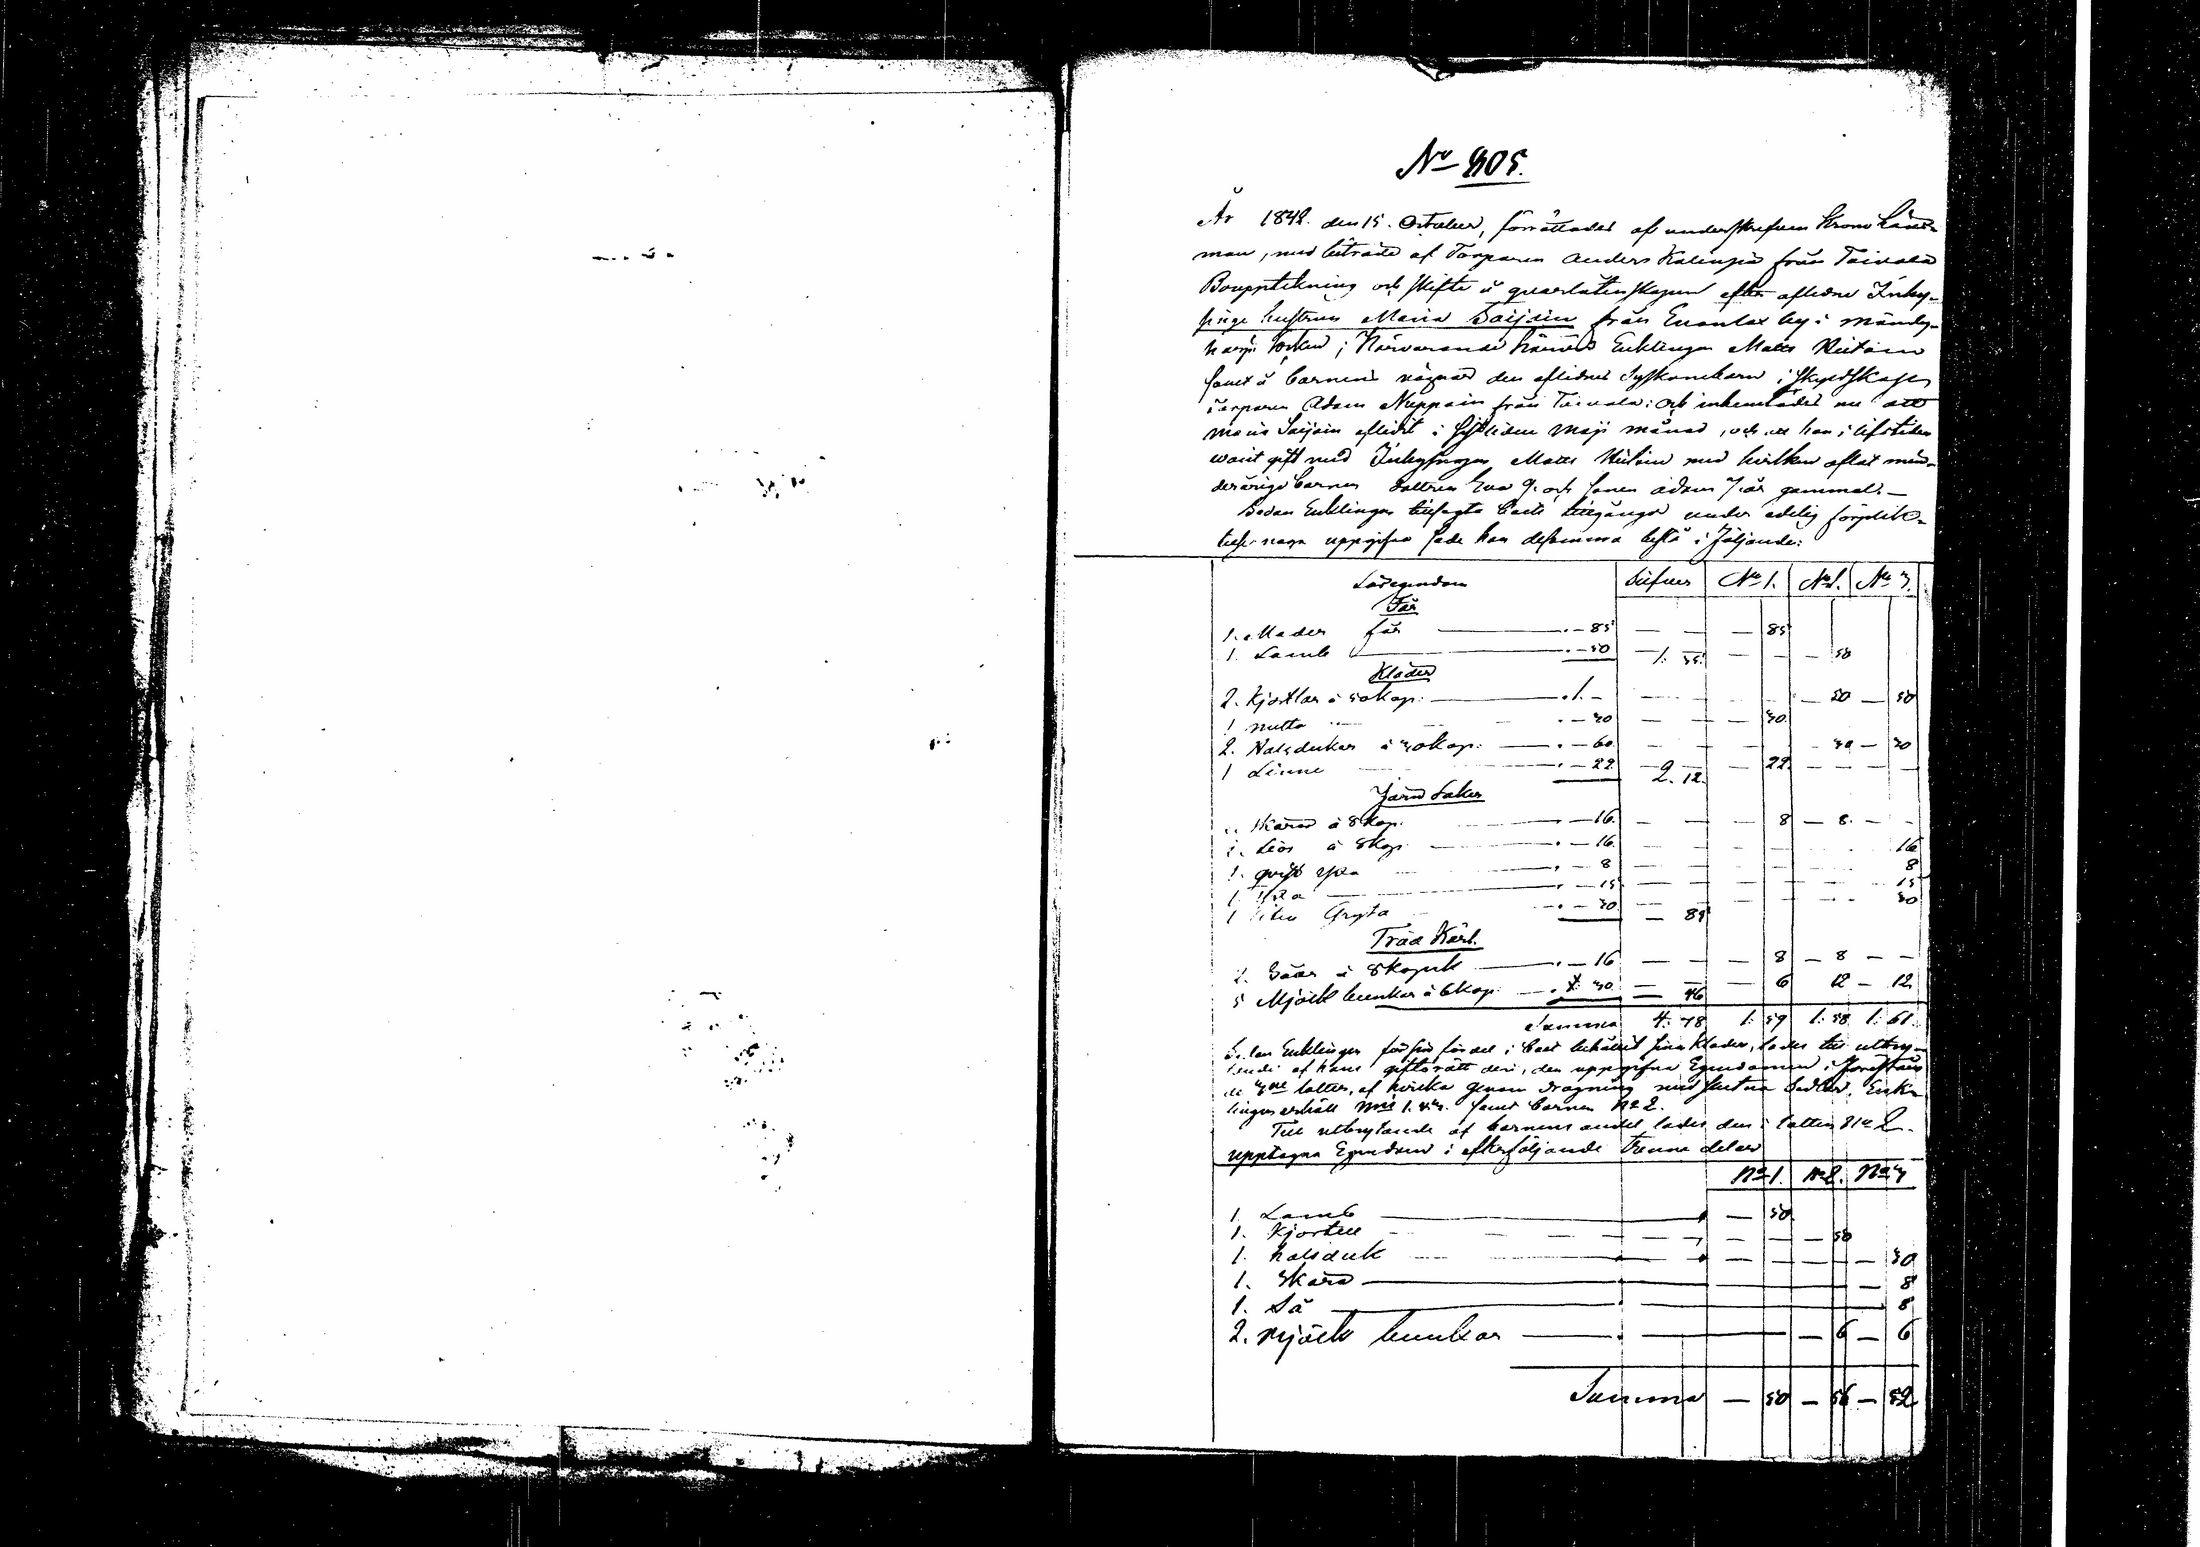 No 205.
År 1842. den 15. October, förrättades af underskrefven Krono Läns-
man, med biträde af Torparen Anders Kalinpä från Toivola
Bouppteckning och skifte å qvarlåtenskapen efter aflidne Inhy-
singe hustrun Maria Saijsin från Enonlax by i Mändy-
harju Socken; Närvarande härvid Enklingen Matts
samt å barnens vägnar den aflidnes Syskonebarn i Skyldskapen
torparen Adam Nuppoin från Toivola: och inhemtades nu att
Maria Saijsin aflidit i sistliden Maji månad, och att hon i lifstiden
warit gift med Inhysingen Matts med hvilken aflat min-
derårige barnen dottren Eva 9. och sonen Adam 7 år gammal. —
Sedan Enklingen tillsagts boets tillgångar under edelig förplik-
telse noga uppgifva sade han desamma bestå i följande:
Lösegendom Silfver No 1. No 2. No 3.
Får
1. Moder får — 85 — — — 85
1. Lamb — 50 1. 35 — — — 50
Kläder
2. Kjortlar à 50 kop. 1. — — — 50 — 50
1 mutta — 30 — — — 30
2. Halsdukar à 30 kop. — 60 — — — 30 — 30
1 Linne — 22 2. 12 — 22 — — —
Järn Saker
Skäror à 8 kop. — 16 — — — 8 — 8. — —
2. Liar à 8 kop — 16 16
1. qvist yxa — 8 8
1. Yxa — 15 15
1 liten Gryta — 30 — 85 30
Träd Kärl.
2. Såar à 8 kopek — 16 — — — 8 — 8 — —
5 Mjölk bunkar à 6 kop — 30 — 46 — 6 12 — 12
Summa 4: 78 1: 59 1: 58 1: 61.
Sedan Enklingen för sin fördel i boet behållit sina kläder, lades till utbry-
tande af hans giftorätt deri, den uppgifna Egendomen i förestående
3ne lotter, af hvilka genom dragning med slutna Sedlar, Enk-
lingen erhöll No 1. & 3. samt barnen No 2.
Till utbrytande af barnens andel lades den i lotten No 2.
upptagna Egendom i efterföljande Trenne delar
No 1. No 2. No 3
1. Lamb — 50
1. Kjortell — — — 50
1. halsduk — — — — 30
1. Skära — 8
1. Så 8
2. Mjölk bunkar — 6 — 6
Summa — 50 — 56 — 52